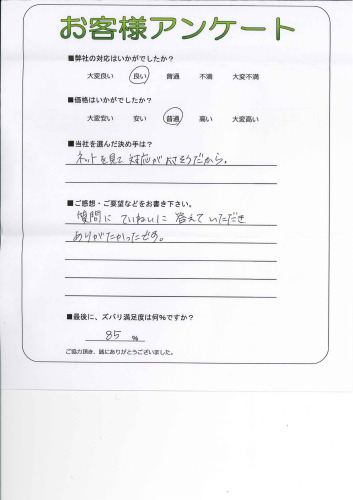 お客様アンケート
■弊社の対応はいかがでしたか？
大変良い 良い 普通 不満 大変不満
■価格はいかがでしたか？
大変安い 安い 普通 高い 大変高い
■当社を選んだ決め手は？
ネットを見て対応が良さそうだから。
■ご感想・ご要望などをお書き下さい。
質問に ていねいに 答えて いただき
ありがたかったです。
■最後に、ズバリ満足度は何％ですか？
85 ％
ご協力頂き、誠にありがとうございました。